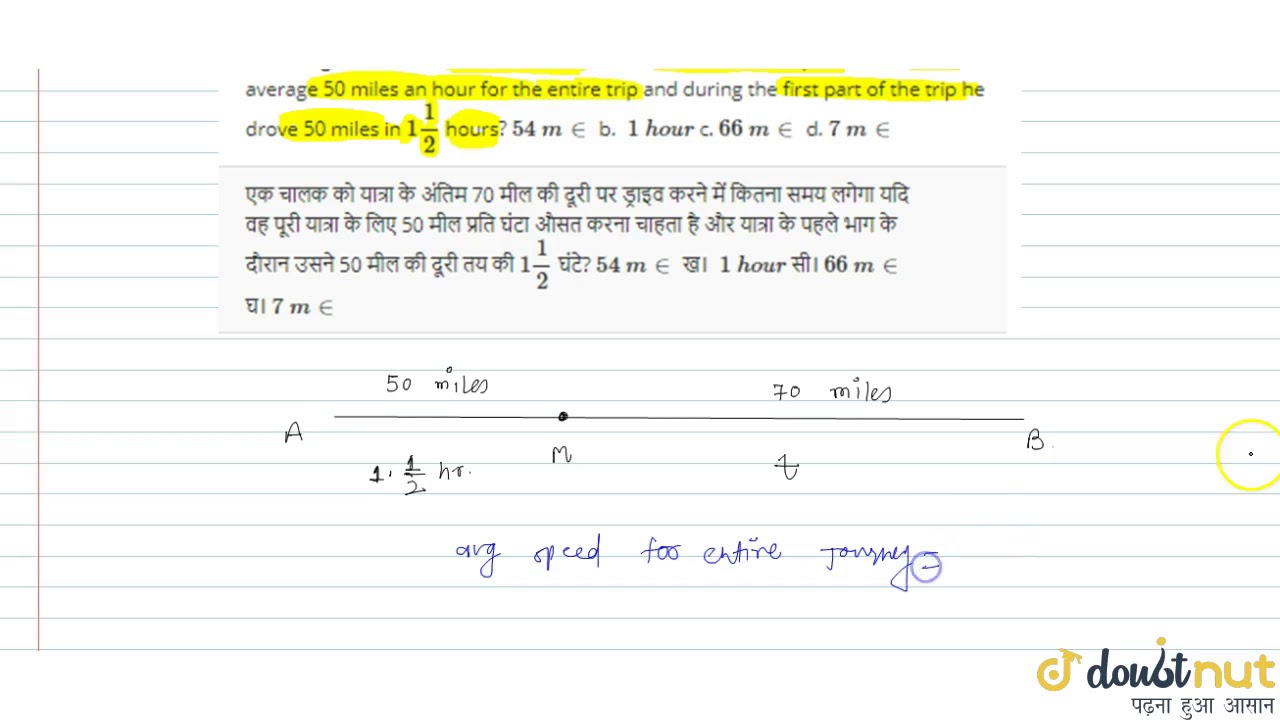 average 50 miles an hour for the entire trip and during the first part of the trip he
drove 50 miles in 1 1/2 hours? 54 m ∈ b. 1 hour c. 66 m ∈ d. 7 m ∈
एक चालक को यात्रा के अंतिम 70 मील की दूरी पर ड्राइव करने में कितना समय लगेगा यदि
वह पूरी यात्रा के लिए 50 मील प्रति घंटा औसत करना चाहता है और यात्रा के पहले भाग के
दौरान उसने 50 मील की दूरी तय की 1 1/2 घंटे? 54 m ∈ ख। 1 hour सी। 66 m ∈
घ। 7 m ∈
50 miles 70 miles
A M B
1 1/2 hr. t
avg speed for entire Journey =
doubtnut
पढ़ना हुआ आसान